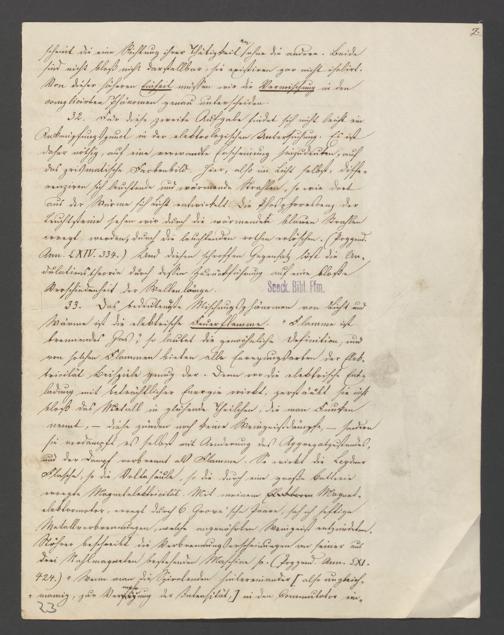 2.
scheint die eine Richtung ihrer Thätigkeit ohne die andere. Beide
sind nicht bloß nicht darstellbar, sie existiren gar nicht isolirt.
Von dieser höheren Einheit müssen wir die Vermischung in den
complicirten Phänomen genau unterscheiden.
32. Für diese zweite Aufgabe findet sich nicht leicht ein
Anknüpfungspunct in der elektrologischen Untersuchung. Es ist
daher nöthig, auf eine verwandte Erscheinung hinzudeuten, auf
das prismatische Farbenbild. Hier, also im Licht selbst, diffe-
renziren sich leuchtende und wärmende Strahlen, so wie dort
aus der Wärme sich Licht entwickelt. Die Phosphorescenz der
Leuchtsteine sehen wir durch die wärmenden blauen Strahlen
erregt werden, durch die leuchtenden rothen erlöschen. (Poggend.
Ann. LXIV. 334.) Und diesen schroffen Gegensatz löst die Un-
dulationstheorie durch dessen Zurückführung auf eine bloße
Verschiedenheit der Wellenlänge.
Senck. Bibl. Ffm.
33. Das bedeutendste Mischungsphänomen von Licht und
Wärme ist die elektrische Feuerflamme. "Flamme ist
brennendes Gas"; so lautet die gewöhnliche Definition, und
von solchen Flammen bieten alle Erregungsarten der Elek-
tricität Beispiele genug dar. Denn wo die elektrische Ent-
ladung mit beträchtlicher Energie wirkt, zerstäubt sie nicht
bloß das Metall in glühende Theilchen, die man Funken
nennt, — diese zünden noch keine Weingeistdämpfe, — sondern
sie verdampft es selbst mit Aenderung des Aggregatzustandes,
und der Dampf verbrennt als Flamme. So wirkt die Leydner
Flasche, so die Voltasäule, so die durch eine große Batterie
erregte Magnetelektricität. Mit meinem Magnet-
elektromotor, erregt durch 6 Grove'sche Paare, sah ich heftige
Metallverbrennungen, welche angenäherten Weingeist entzündeten.
Stöhrer beschreibt die Verbrennungserscheinungen an seiner aus
drei Stahlmagneten bestehenden Maschine so. (Poggend. Ann. LXI.
424.) "Wenn man die Spiralenden hintereinander [also ungleich-
namig, zur der Intensität,] in den Commutator ein-
23